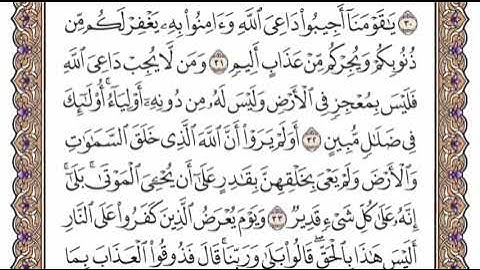 ٣٠ يَـٰقَوْمَنَآ أَجِيبُوا۟ دَاعِىَ ٱللَّهِ وَءَامِنُوا۟ بِهِۦ يَغْفِرْ لَكُم مِّن
ذُنُوبِكُمْ وَيُجِرْكُم مِّنْ عَذَابٍ أَلِيمٍ ٣١ وَمَن لَّا يُجِبْ دَاعِىَ ٱللَّهِ
فَلَيْسَ بِمُعْجِزٍ فِى ٱلْأَرْضِ وَلَيْسَ لَهُۥ مِن دُونِهِۦٓ أَوْلِيَآءُ ۚ أُو۟لَـٰٓئِكَ
فِى ضَلَـٰلٍ مُّبِينٍ ٣٢ أَوَلَمْ يَرَوْا۟ أَنَّ ٱللَّهَ ٱلَّذِى خَلَقَ ٱلسَّمَـٰوَٰتِ
وَٱلْأَرْضَ وَلَمْ يَعْىَ بِخَلْقِهِنَّ بِقَـٰدِرٍ عَلَىٰٓ أَن يُحْـِۧىَ ٱلْمَوْتَىٰ ۚ بَلَىٰٓ
إِنَّهُۥ عَلَىٰ كُلِّ شَىْءٍ قَدِيرٌ ٣٣ وَيَوْمَ يُعْرَضُ ٱلَّذِينَ كَفَرُوا۟ عَلَى ٱلنَّارِ
أَلَيْسَ هَـٰذَا بِٱلْحَقِّ ۖ قَالُوا۟ بَلَىٰ وَرَبِّنَا ۚ قَالَ فَذُوقُوا۟ ٱلْعَذَابَ بِمَا